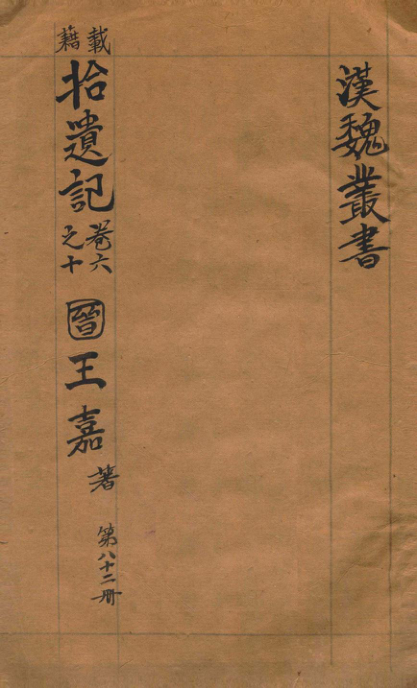 漢魏叢書
載籍
拾遺記
卷六之十
晉王嘉著
第八十二冊